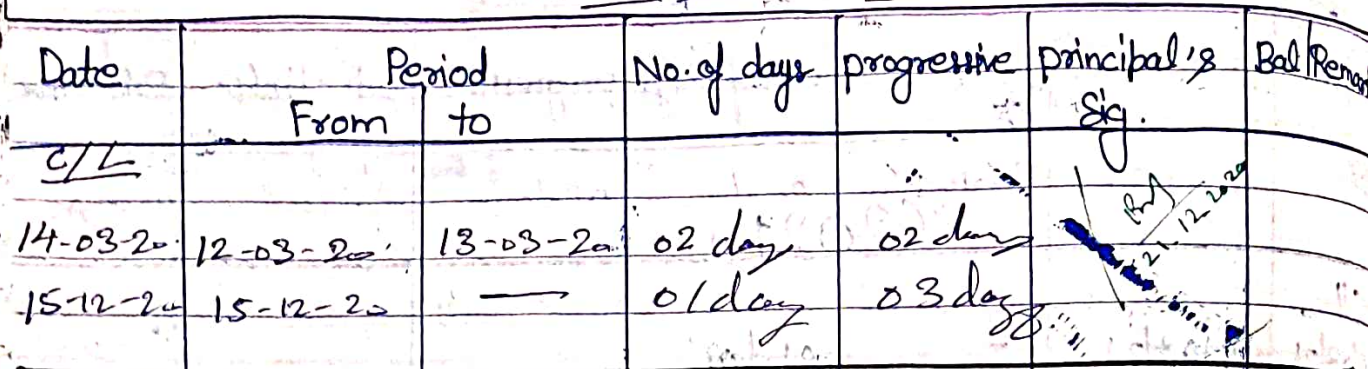 Date Period No. of days progressive principal's Bal
From to Sig.
C/L
14-03-20 12-03-20 13-03-20 02 day 02 days
21.12.2020
15-12-20 15-12-20 — 01 day 03 days